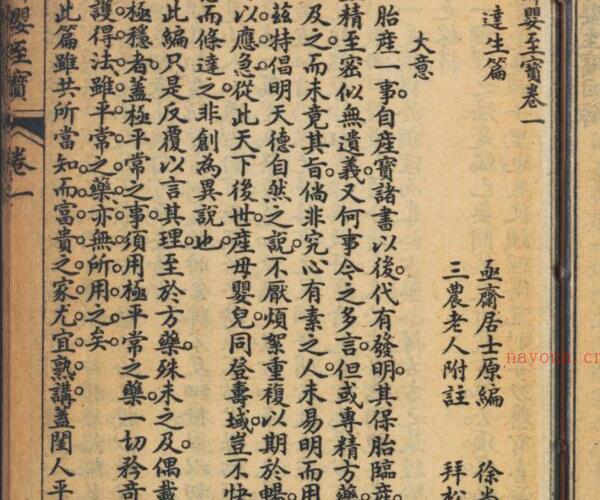 嬰至寶卷一
達生篇
亟齋居士原編 徐
三農老人附註 拜松
大意
胎產一事自產寶諸書以後代有發明其保胎臨產
精至密似無遺義又何事今之多言但或專精方藥
及之而未竟其旨倘非究心有素之人未易明而用
茲特倡明天德自然之說不厭煩絮重複以期於暢
以應急從此天下後世產母嬰兒同登壽域豈不快
而條達之非創為異說也
此編只是反覆以言其理至於方藥殊未之及偶載
極穩者蓋極平常之事須用極平常之藥一切矜奇
護得法雖平常之藥亦無所用之矣
此篇雖共所當知而富貴之家尤宜熟講蓋閨人平
嬰至寶 卷一
nayona.cn